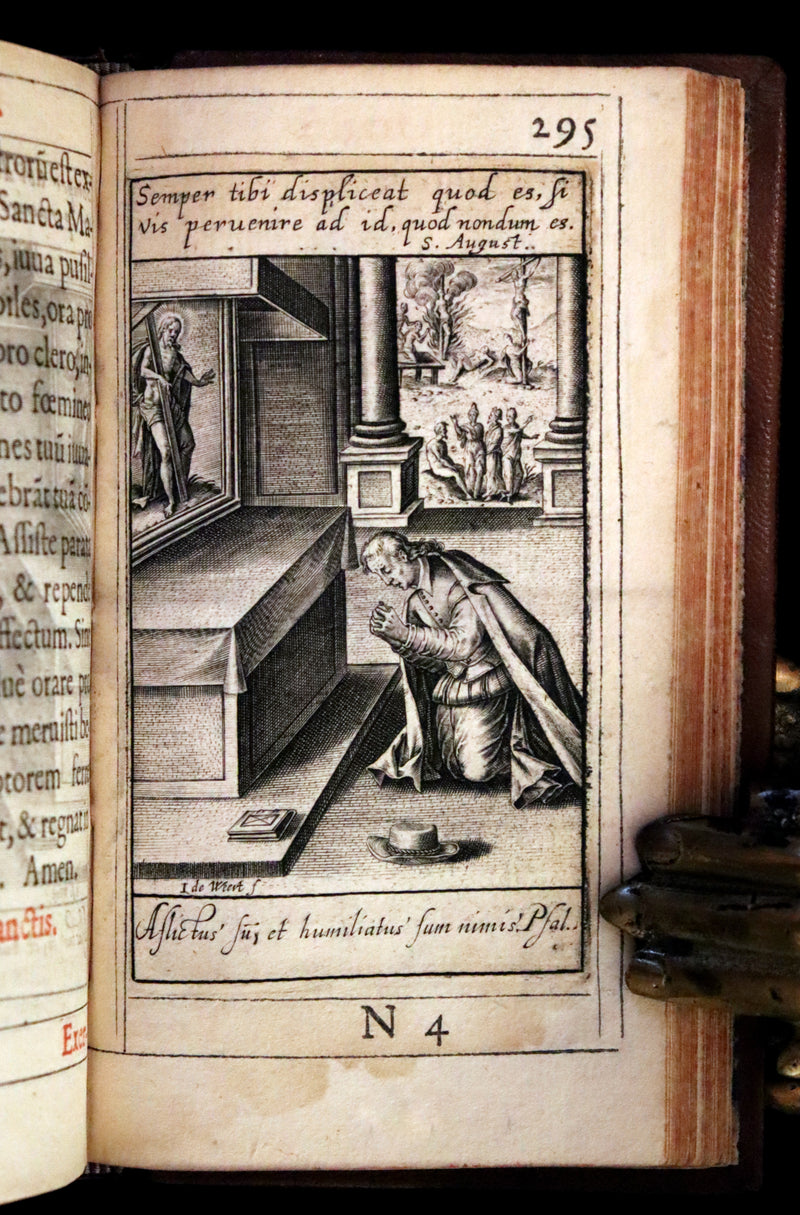 rorū est ex-
Sancta Ma-
iuua pusil-
biles, ora pro
pro clero, in-
to fœmineo
nes tuū iuua-
ebrāt tuā cō-
Assiste parata
, & repende
ffectum. Sint
uè orare pro
e meruisti be-
ptorem
t, & regnat in
. Amen.
anctis.
Exer
295
Semper tibi displiceat quod es, si
vis peruenire ad id, quod nondum es.
S. August..
I de Wiert f
Aflictus sū, et humiliatus sum nimis. Psal.
N 4